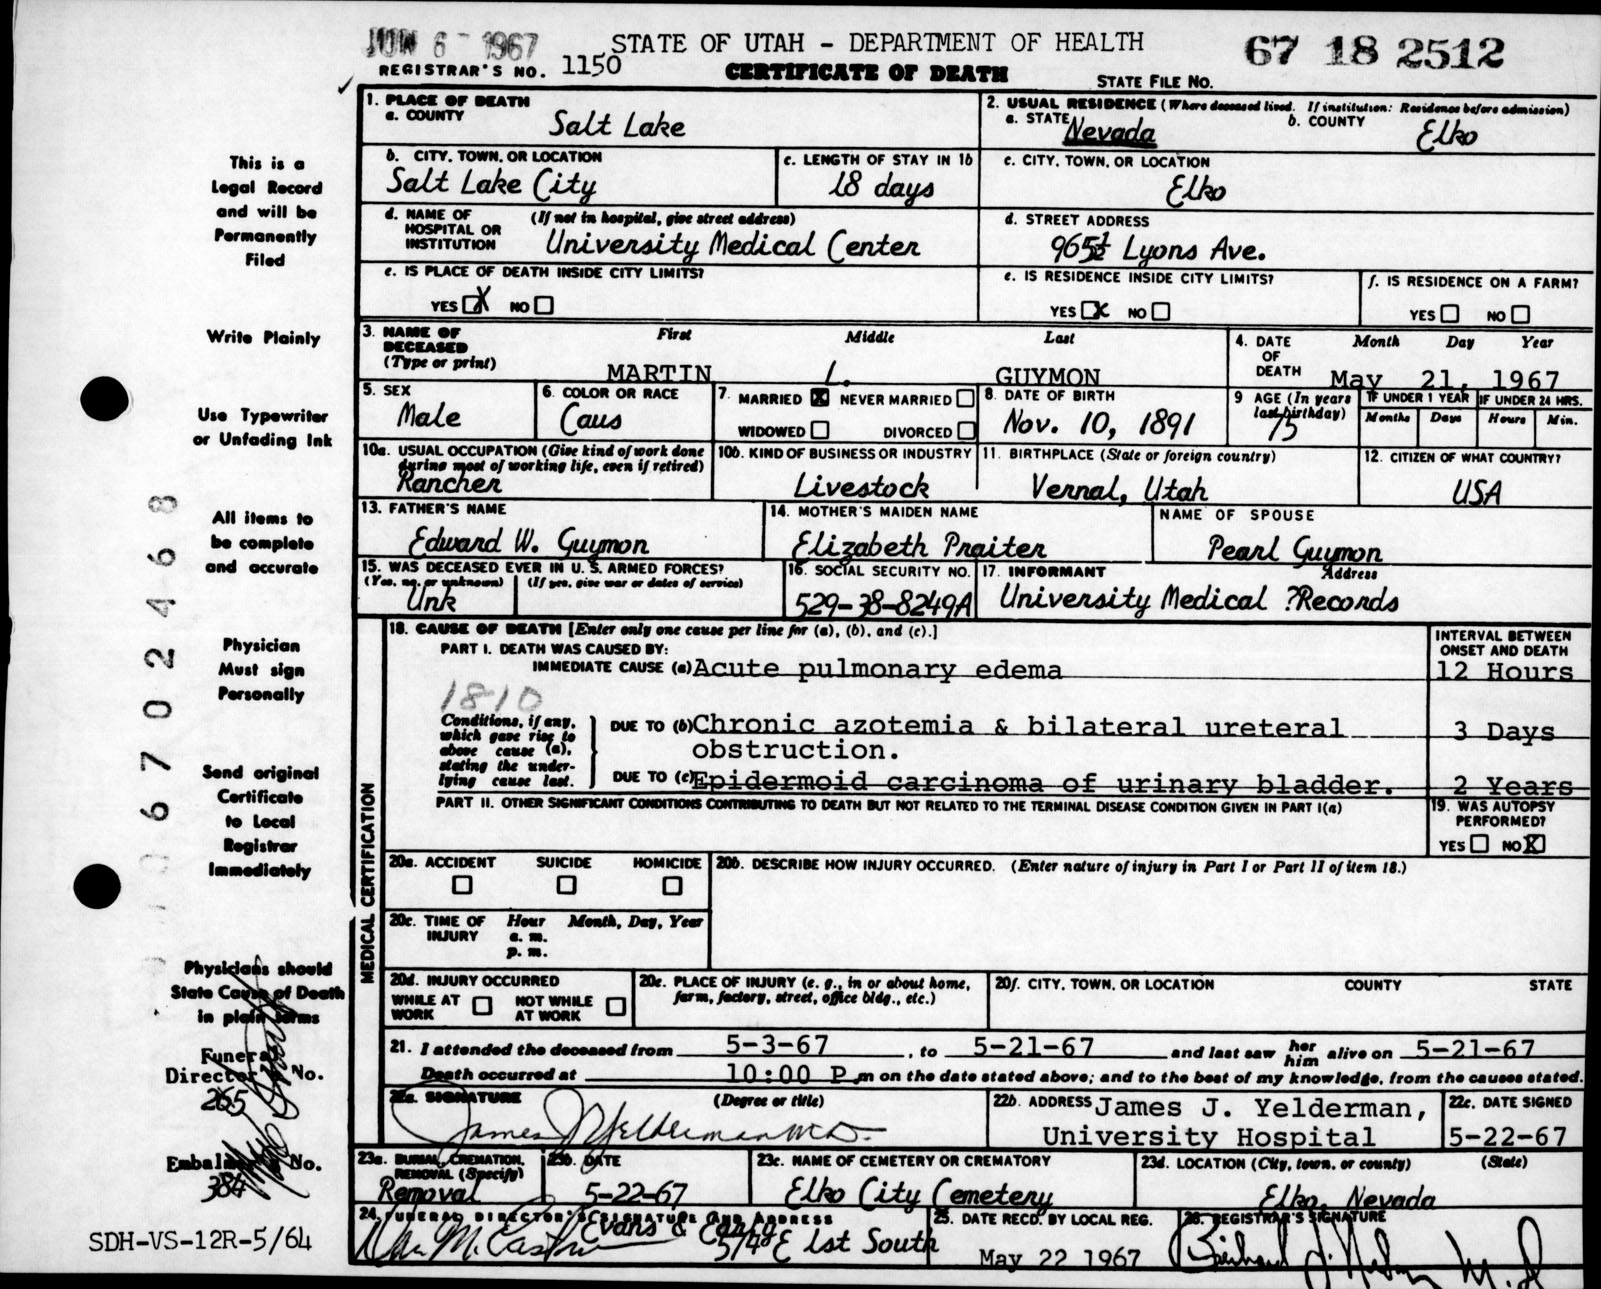 JUN 6 - 1967
STATE OF UTAH - DEPARTMENT OF HEALTH
67 18 2512
REGISTRAR'S NO. 1150
CERTIFICATE OF DEATH
STATE FILE NO.
1. PLACE OF DEATH
a. COUNTY
Salt Lake
2. USUAL RESIDENCE (Where deceased lived. If institution: Residence before admission)
a. STATE Nevada
b. COUNTY Elko
b. CITY, TOWN, OR LOCATION
Salt Lake City
c. LENGTH OF STAY IN 1b
18 days
c. CITY, TOWN, OR LOCATION
Elko
d. NAME OF HOSPITAL OR INSTITUTION (If not in hospital, give street address)
University Medical Center
d. STREET ADDRESS
965½ Lyons Ave.
e. IS PLACE OF DEATH INSIDE CITY LIMITS?
YES X NO
e. IS RESIDENCE INSIDE CITY LIMITS?
YES X NO
f. IS RESIDENCE ON A FARM?
YES NO
3. NAME OF DECEASED (Type or print)
First Middle Last
MARTIN L. GUYMON
4. DATE OF DEATH
Month Day Year
May 21, 1967
5. SEX
Male
6. COLOR OR RACE
Caus
7. MARRIED X NEVER MARRIED
WIDOWED DIVORCED
8. DATE OF BIRTH
Nov. 10, 1891
9 AGE (In years last birthday)
75
IF UNDER 1 YEAR
Months Days
IF UNDER 24 HRS.
Hours Min.
10a. USUAL OCCUPATION (Give kind of work done during most of working life, even if retired)
Rancher
10b. KIND OF BUSINESS OR INDUSTRY
Livestock
11. BIRTHPLACE (State or foreign country)
Vernal, Utah
12. CITIZEN OF WHAT COUNTRY?
USA
13. FATHER'S NAME
Edward W. Guymon
14. MOTHER'S MAIDEN NAME
Elizabeth Praiter
NAME OF SPOUSE
Pearl Guymon
15. WAS DECEASED EVER IN U. S. ARMED FORCES?
(Yes, no, or unknown) (If yes, give war or dates of service)
Unk
16. SOCIAL SECURITY NO.
529-38-8249A
17. INFORMANT Address
University Medical ?Records
MEDICAL CERTIFICATION
18. CAUSE OF DEATH [Enter only one cause per line for (a), (b), and (c).]
PART I. DEATH WAS CAUSED BY:
IMMEDIATE CAUSE (a) Acute pulmonary edema
1810
Conditions, if any, which gave rise to above cause (a), stating the underlying cause last.
DUE TO (b) Chronic azotemia & bilateral ureteral
obstruction.
DUE TO (c) Epidermoid carcinoma of urinary bladder.
INTERVAL BETWEEN ONSET AND DEATH
12 Hours
3 Days
2 Years
PART II. OTHER SIGNIFICANT CONDITIONS CONTRIBUTING TO DEATH BUT NOT RELATED TO THE TERMINAL DISEASE CONDITION GIVEN IN PART I(a)
19. WAS AUTOPSY PERFORMED?
YES NO X
20a. ACCIDENT SUICIDE HOMICIDE
20b. DESCRIBE HOW INJURY OCCURRED. (Enter nature of injury in Part I or Part II of item 18.)
20c. TIME OF INJURY Hour Month, Day, Year
a. m.
p. m.
20d. INJURY OCCURRED
WHILE AT WORK NOT WHILE AT WORK
20e. PLACE OF INJURY (e. g., in or about home, farm, factory, street, office bldg., etc.)
20f. CITY, TOWN, OR LOCATION COUNTY STATE
21. I attended the deceased from 5-3-67, to 5-21-67 and last saw her him alive on 5-21-67
Death occurred at 10:00 P.m on the date stated above; and to the best of my knowledge, from the causes stated.
22a. SIGNATURE (Degree or title)
James J Yelderman M.D.
22b. ADDRESS James J. Yelderman,
University Hospital
22c. DATE SIGNED
5-22-67
23a. BURIAL, CREMATION, REMOVAL (Specify)
Removal
23b. DATE
5-22-67
23c. NAME OF CEMETERY OR CREMATORY
Elko City Cemetery
23d. LOCATION (City, town, or county) (State)
Elko, Nevada
24. FUNERAL DIRECTOR'S SIGNATURE AND ADDRESS
Evans & Early
574 E 1st South
25. DATE RECD. BY LOCAL REG.
May 22 1967
26. REGISTRAR'S SIGNATURE
This is a
Legal Record
and will be
Permanently
Filed
Write Plainly
Use Typewriter
or Unfading Ink
All items to
be complete
and accurate
Physician
Must sign
Personally
Send original
Certificate
to Local
Registrar
Immediately
Physicians should
State Cause of Death
in plain terms
Funeral
Director No.
265
Embalmer's No.
384
SDH-VS-12R-5/64